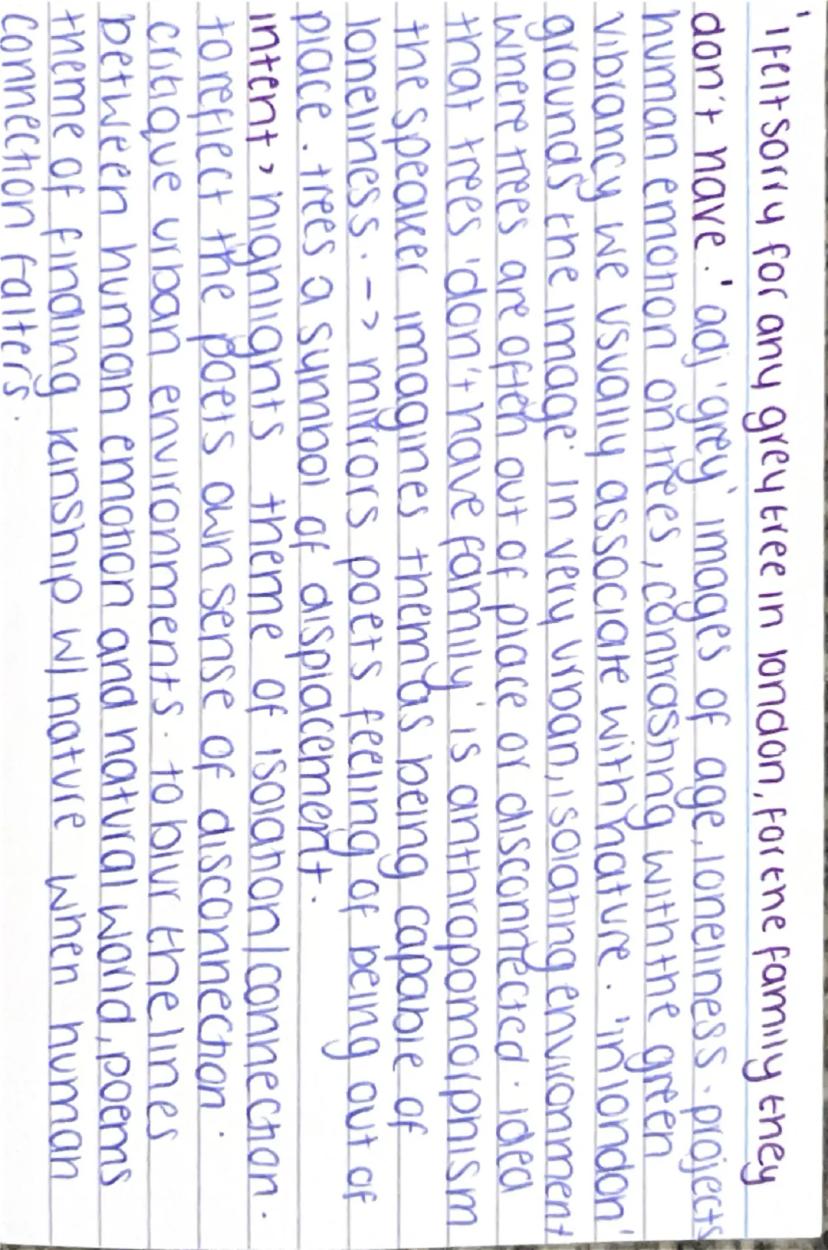 'I felt sorry for any grey tree in london, for the family they
don't have.' adj 'grey' images of age, loneliness. projects
human emotion on trees, contrasting with the green
vibrancy we usually associate with nature. 'in london'
grounds the image in very urban, isolating environment
where trees are often out of place or disconnected. idea
that trees 'don't have family' is anthropomorphism
the speaker imagines them as being capable of
loneliness. -> mirrors poets feeling of being out of
place. trees a symbol of displacement.
intent > highlights theme of isolation/connection.
to reflect the poets own sense of disconnection.
critique urban environments. to blur the lines
between human emotion and natural world, poems
theme of finding kinship w/ nature when human
connection falters.